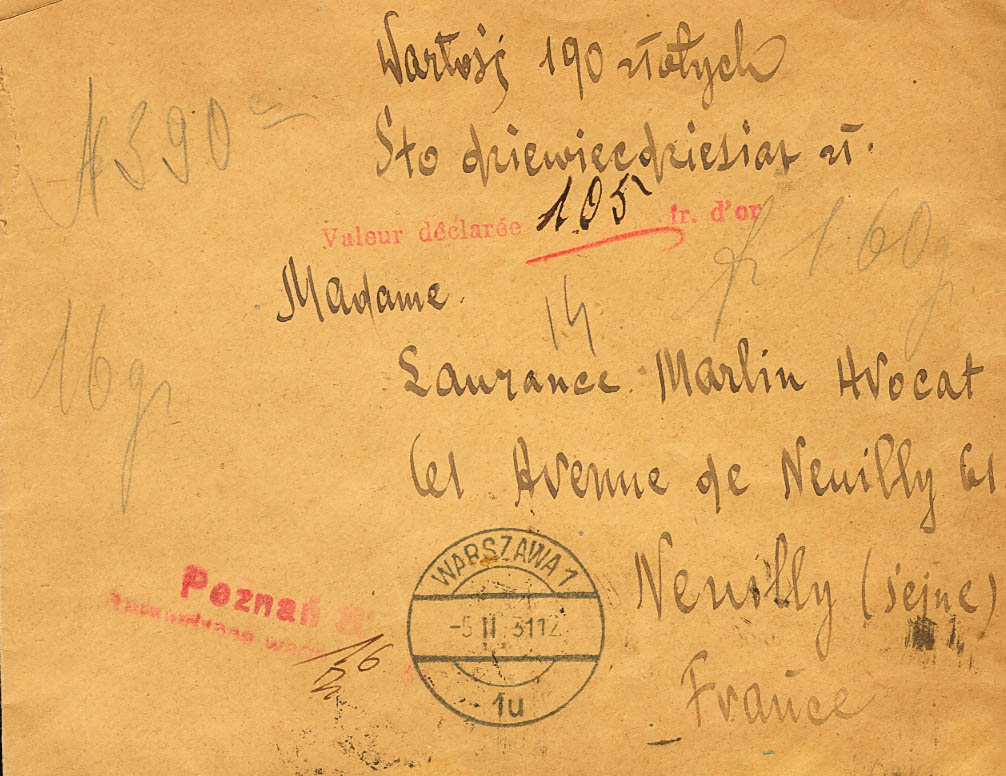 Wartość 190 złotych
Sto dziewięćdziesiąt zł.
№ 390
Valeur déclarée 105 fr. d'or
1 60 gr
Madame
14
16 gr
Laurance Marlin Avocat
61 Avenue de Neuilly 61
Neuilly (sejne)
France
Poznań
16
WARSZAWA 1
-5 II 31 12
1u